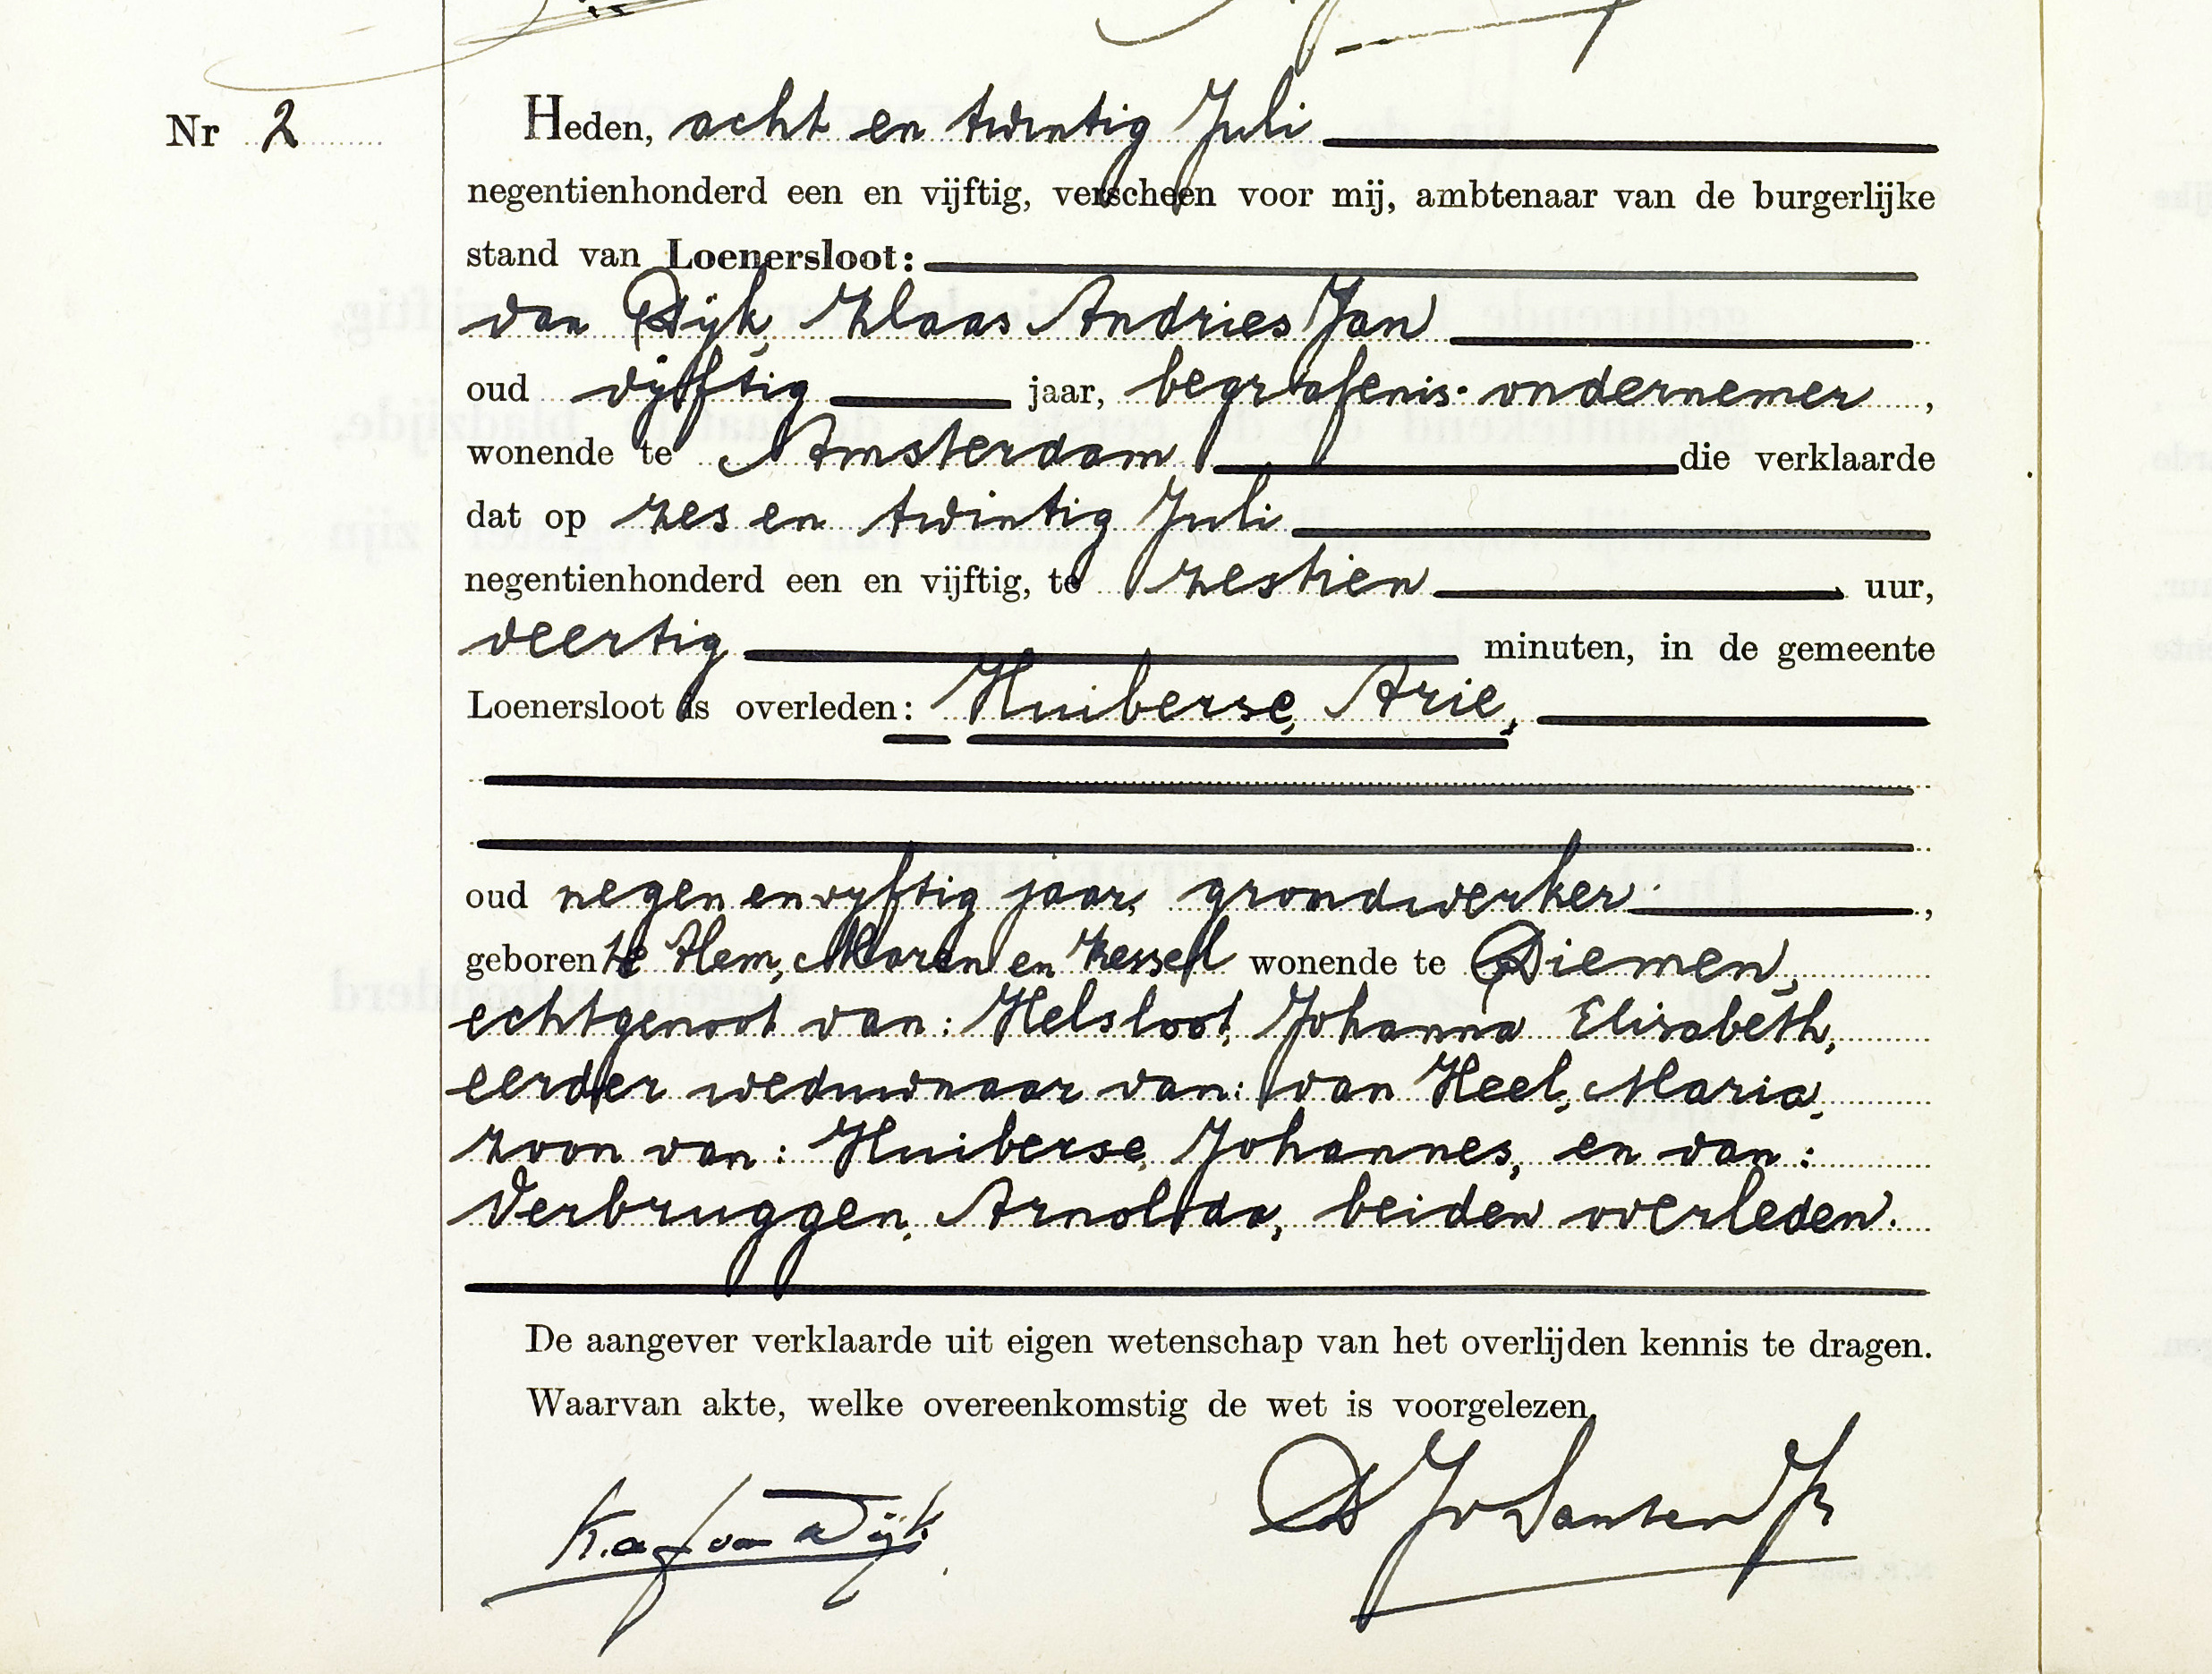 Nr 2
Heden, acht en twintig Juli
negentienhonderd een en vijftig, verscheen voor mij, ambtenaar van de burgerlijke
stand van Loenersloot:
van Dijk, Klaas Andries Jan
oud vijftig jaar, begrafenis-ondernemer,
wonende te Amsterdam die verklaarde
dat op zes en twintig Juli
negentienhonderd een en vijftig, te zestien uur,
veertig minuten, in de gemeente
Loenersloot is overleden: Huiberse, Arie,
oud negen en vyftig jaar, grondwerker,
geboren te Alem, Maren en Kessel wonende te Diemen,
echtgenoot van: Helsloot, Johanna Elisabeth,
eerder weduwnaar van: van Heel, Maria,
zoon van: Huiberse, Johannes, en van:
Verbruggen, Arnolda, beiden overleden.
De aangever verklaarde uit eigen wetenschap van het overlijden kennis te dragen.
Waarvan akte, welke overeenkomstig de wet is voorgelezen.
K.A.J. van Dijk